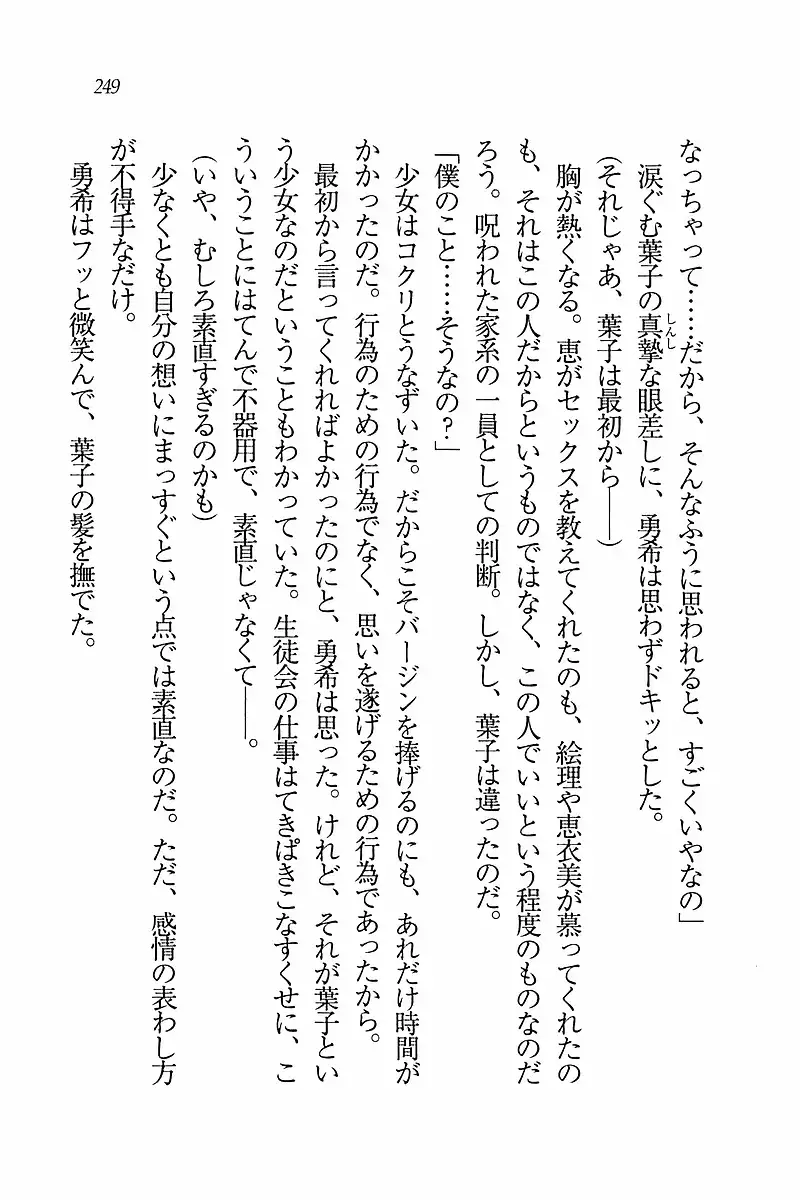 249
なっちゃって……だから、そんなふうに思われると、すごくいやなの」
涙ぐむ葉子の真摯な眼差しに、勇希は思わずドキッとした。
しんし
(それじゃあ、葉子は最初から――)
胸が熱くなる。恵がセックスを教えてくれたのも、絵理や恵衣美が慕ってくれたの
も、それはこの人だからというものではなく、この人でいいという程度のものなのだ
ろう。呪われた家系の一員としての判断。しかし、葉子は違ったのだ。
「僕のこと……そうなの?」
少女はコクリとうなずいた。だからこそバージンを捧げるのにも、あれだけ時間が
かかったのだ。行為のための行為でなく、思いを遂げるための行為であったから。
最初から言ってくれればよかったのにと、勇希は思った。けれど、それが葉子とい
う少女なのだということもわかっていた。生徒会の仕事はてきぱきこなすくせに、こ
ういうことにはてんで不器用で、素直じゃなくて――。
(いや、むしろ素直すぎるのかも)
少なくとも自分の想いにまっすぐという点では素直なのだ。ただ、感情の表わし方
が不得手なだけ。
勇希はフッと微笑んで、葉子の髪を撫でた。